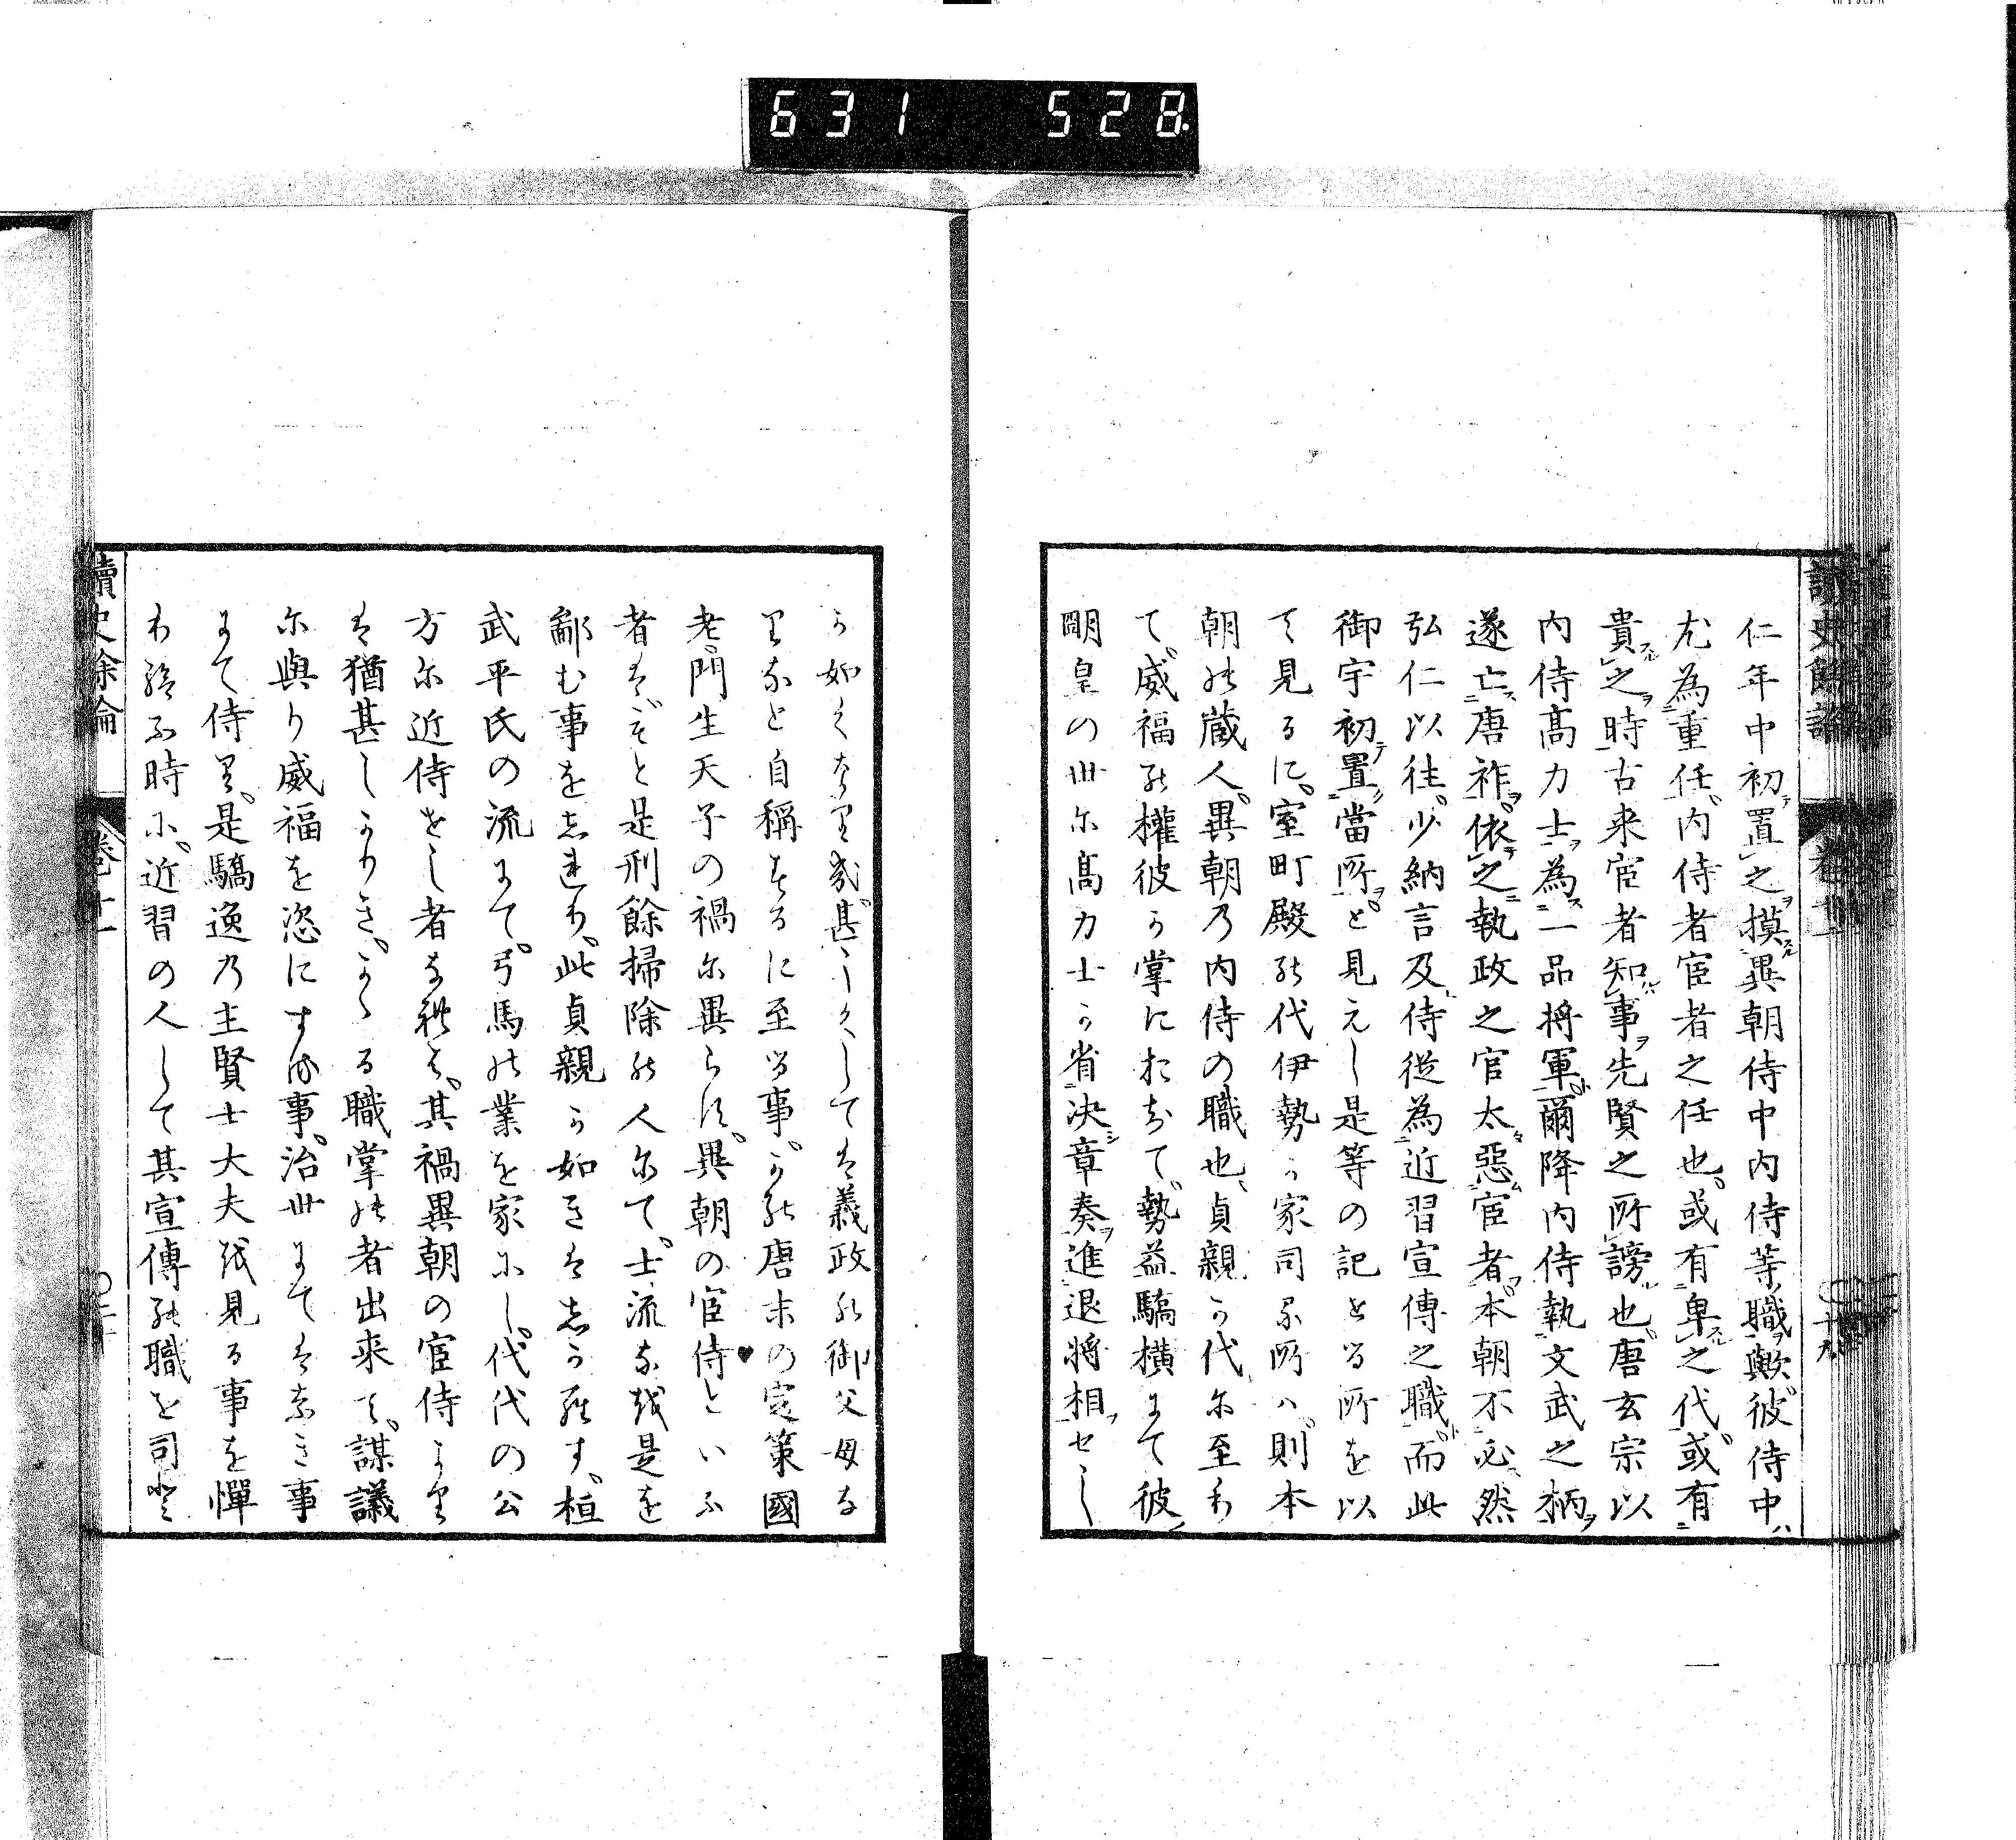 631 528
仁年中初置之摸異朝侍中内侍等職歟彼侍中ハ
尤為重任内侍者宦者之任也或有卑之代或有
貴之時古来宦者知事先賢之所謗也唐玄宗以
内侍髙力士為一品将軍爾降内侍執文武之柄
遂亡唐祚依之執政之官太惡宦者本朝不必然
弘仁以往少納言及侍従為近習宣傳之職而此
御宇初置當所と見えし是等の記せる所を以
て見るに室町殿の代伊勢か家司る所ハ則本
朝の蔵人異朝乃内侍の職也貞親か代に至り
て威福の權彼か掌におちて勢益驕横にて彼
明皇の世に髙力士か省决章奏進退将相せし
か如くなり甚しくしては義政の御父母な
りなと自稱するに至る事かの唐末の定策國
老門生天子の禍に異らす異朝の宦侍といふ
者はもと是刑餘掃除の人にて士流なを是を
鄙む事をしれり此貞親か如きはしからす桓
武平氏の流にて弓馬の業を家にし代代の公
方に近侍せし者なれは其禍異朝の宦侍より
は猶甚しかりきかゝる職掌の者出来て謀議
に與り威福を恣にする事治世にてはなき事
にて侍り是驕逸乃主賢士大夫を見る事を憚
り給ふ時に近習の人して其宣傳の職を司と
讀史餘論 卷十一